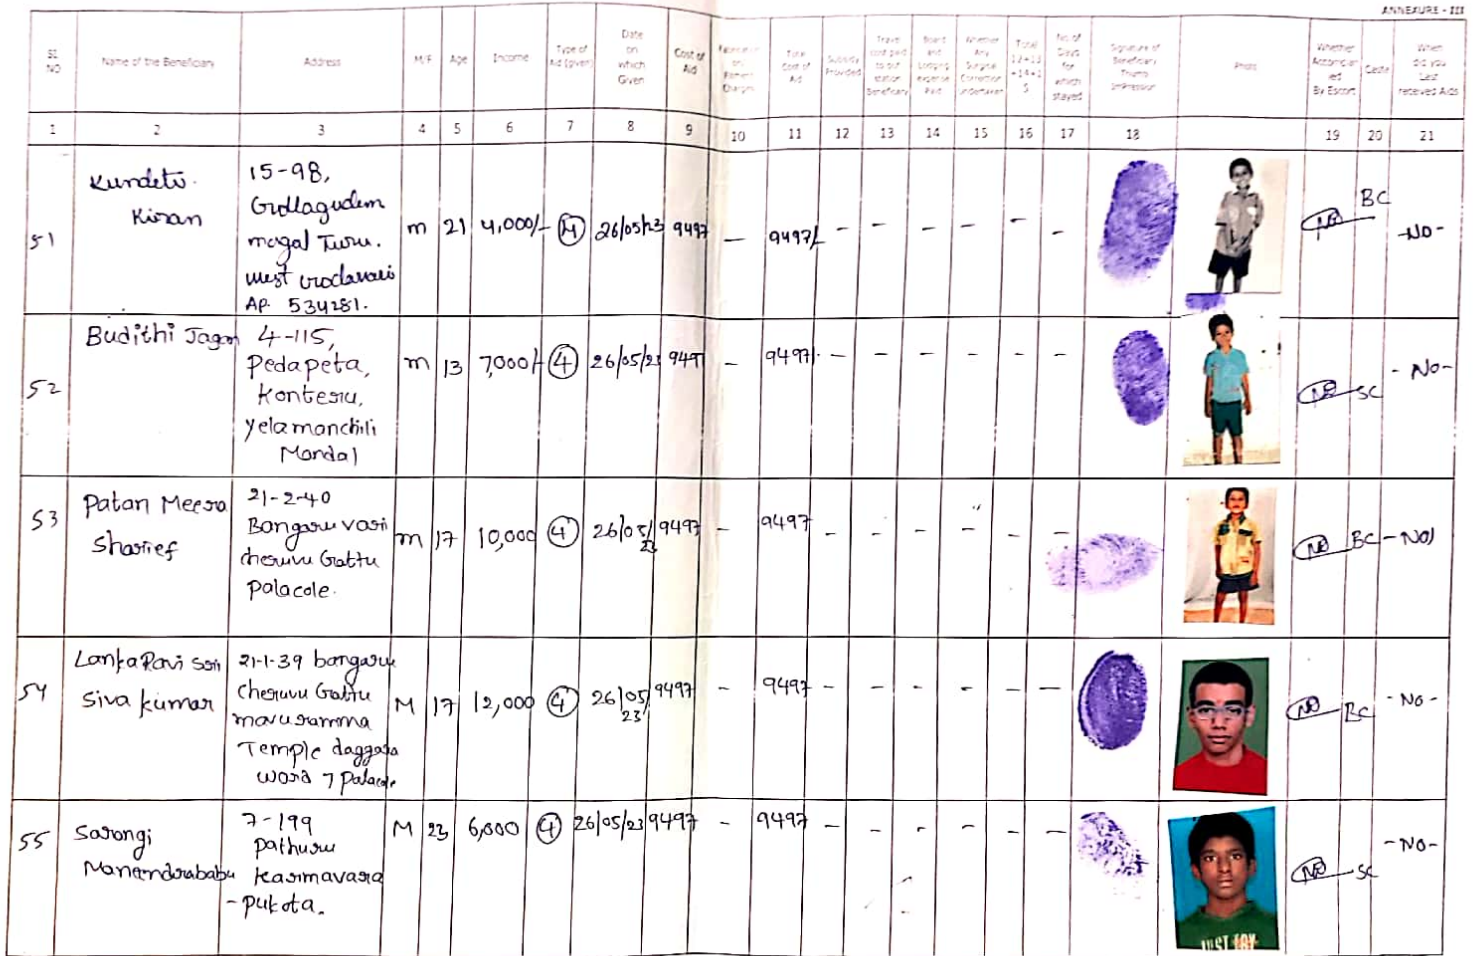 ANNEXURE - III
SL NO
Name of the Beneficiary
Address
M/F
Age
Income
Type of Aid (given)
Date on which Given
Cost of Aid
Total Cost of Aid
Subsidy Provided
Travel cost paid to out station Beneficiary
Board and Lodging expense Paid
Whether Any Surgical Correction undertaken
Total 12+13+14+15
No. of Days for which stayed
Signature of Beneficiary Thumb Impression
Photo
Whether Accompanied By Escort
Caste
When did you Last received Aids
1 2 3 4 5 6 7 8 9 10 11 12 13 14 15 16 17 18 19 20 21
51
Kundeti
Kiran
15-98,
Gollagudem
mogal Turu.
west Godavari
AP. 534281.
m 21 4,000/- 4 26/05/23 9497 - 9497/- - - - - - - NO BC -No-
52
Budithi Jagan
4-115,
Pedapeta,
Konteru,
yelamanchili
Mandal
m 13 7,000/- 4 26/05/23 9497 - 9497/- - - - - - - NO SC - No-
53
Patan Meera
Sharief
21-2-40
Bangaru vari
cheruvu Gattu
Palacole.
m 17 10,000 4 26/05/23 9497 - 9497 - - - - - - NO BC - NO
54
Lanka Ravi
Siva kumar
21-1-39 bangaru
cheruvu Gattu
mavuramma
Temple daggara
word 7 Palacole
M 17 12,000 4 26/05/23 9497 - 9497 - - - - - - NO BC - No -
55
Sarongi
Manendrababu
7-199
Pathuru
Karmavara
-Pukota.
M 23 6,000 4 26/05/23 9497 - 9497 - - - - - - NO SC -No-